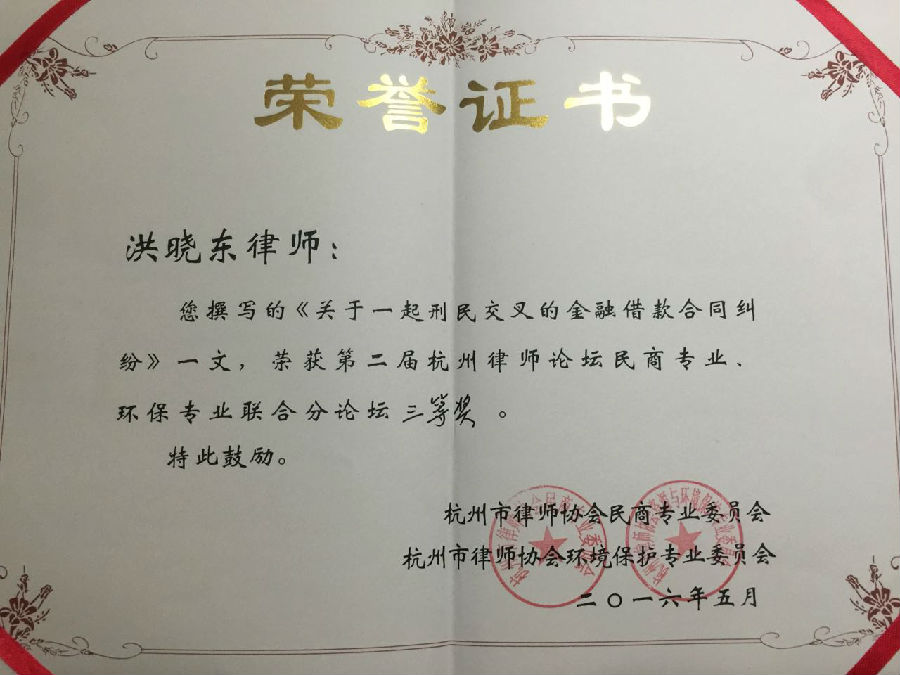 荣誉证书
洪晓东律师：
您撰写的《关于一起刑民交叉的金融借款合同纠
纷》一文，荣获第二届杭州律师论坛民商专业、
环保专业联合分论坛三等奖。
特此鼓励。
杭州市律师协会民商专业委员会
杭州市律师协会环境保护专业委员会
二〇一六年五月